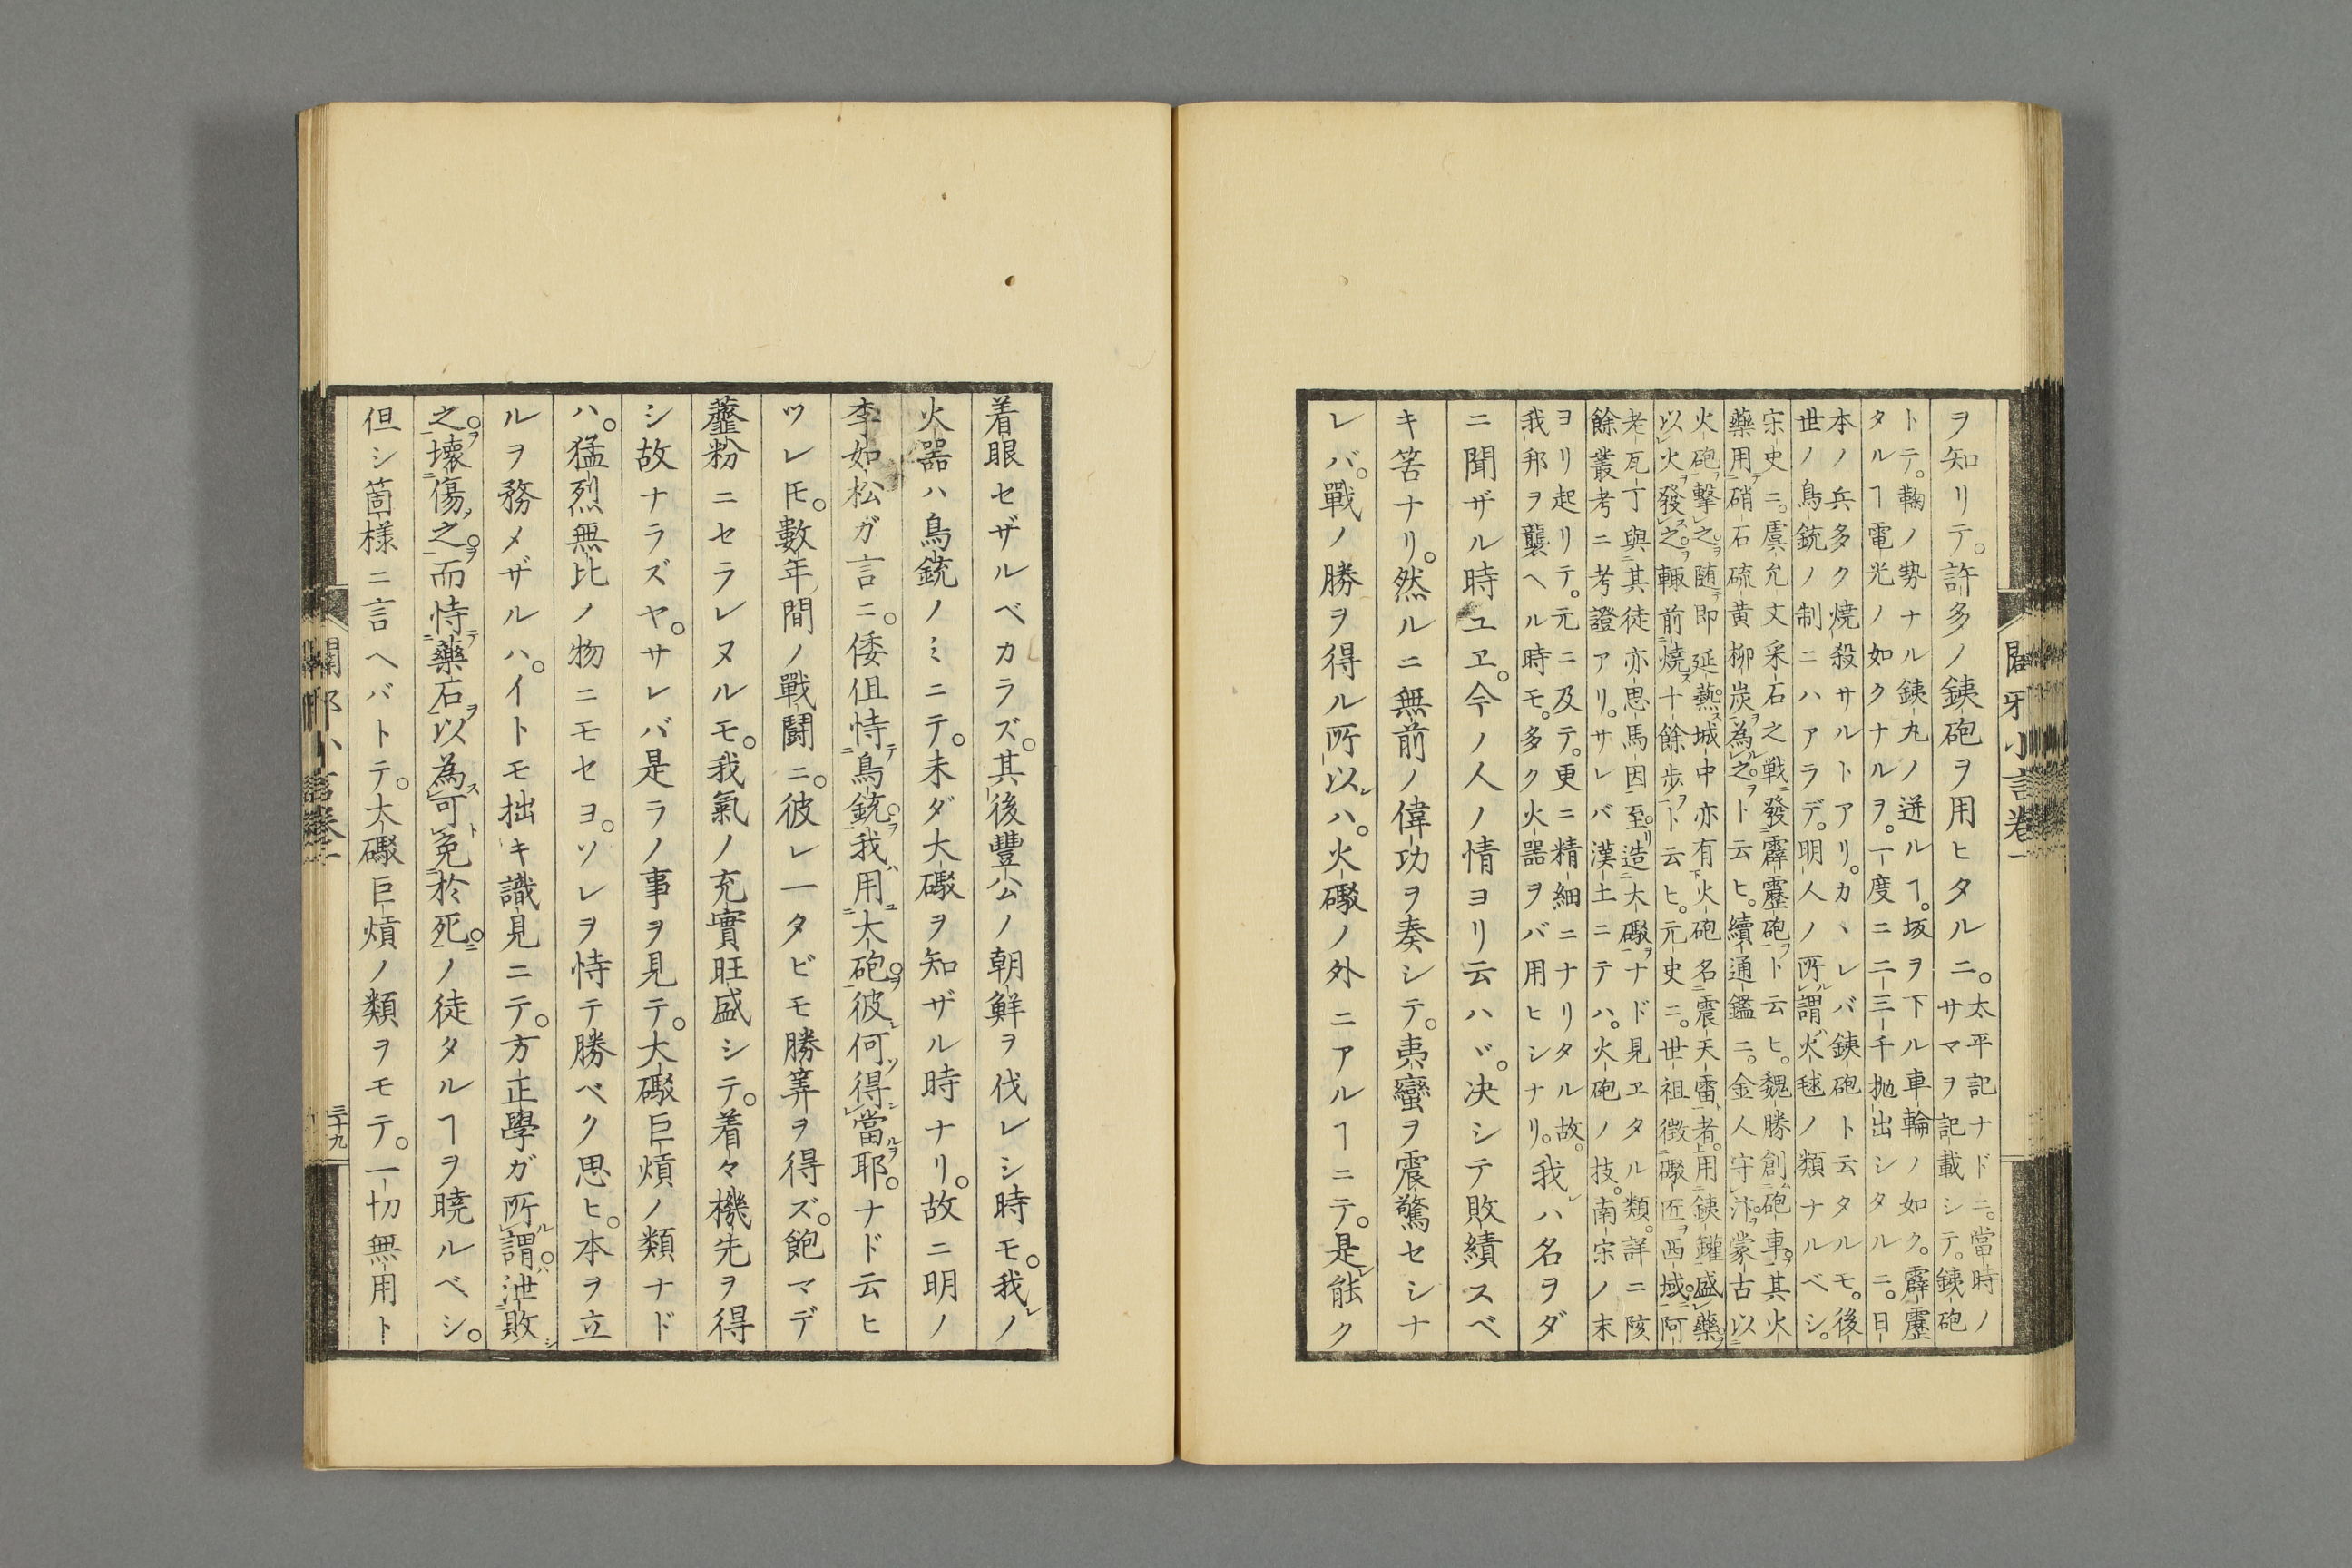 ヲ知リテ。許多ノ銕砲ヲ用ヒタルニ。太平記ナドニ。當時ノ
サマヲ記載シテ。銕砲
トテ。鞠ノ勢ナル銕丸ノ迸ルヿ。坂ヲ下ル車輪ノ如ク。霹靂
タルヿ電光ノ如クナルヲ。一度ニ二三千拋出シタルニ。日
本ノ兵多ク燒殺サルトアリ。カヽレバ銕砲ト云タルモ。後
世ノ鳥銃ノ制ニハアラデ。明人ノ所謂火毬ノ類ナルベシ。
宋史ニ。虞允文采石之戦發霹靂砲ト云ヒ。魏勝創砲車。其火
藥用硝石硫黄柳炭為之ト云ヒ。續通鑑ニ。金人守汴。蒙古以
火砲擊之。随即延爇。城中亦有火砲名震天雷者。用銕罐盛藥。
以火發之。輙前燒十餘歩ト云ヒ。元史ニ。世祖徴礮匠西域。阿
老瓦丁與其徒亦思馬因至。造大礮ナド見ヱタル類。詳ニ陔
餘叢考ニ考證アリ。サレバ漢土ニテハ。火砲ノ技。南宋ノ末
ヨリ起リテ。元ニ及テ。更ニ精細ニナリタル故。
我邦ヲ襲ヘル時モ。多ク火器ヲバ用ヒシナリ。我ハ名ヲダ
ニ聞ザル時ユヱ。今ノ人ノ情ヨリ云ハヾ。决シテ敗績スベ
キ筈ナリ。然ルニ無前ノ偉功ヲ奏シテ。夷蠻ヲ震驚セシナ
レバ。戰ノ勝ヲ得ル所以ハ。火礮ノ外ニアルヿニテ。是能ク
着眼セザルベカラズ。其後豐公ノ朝鮮ヲ伐レシ時モ。我ノ
火器ハ鳥銃ノミニテ。未ダ大礮ヲ知ザル時ナリ。故ニ明ノ
李如松ガ言ニ。倭但恃鳥銃。我用大砲。彼何得當耶。ナド云ヒ
ツレドモ。數年間ノ戰鬪ニ。彼レ一タビモ勝筭ヲ得ズ。飽マデ
虀粉ニセラレヌルモ。我氣ノ充實旺盛シテ。着々機先ヲ得
シ故ナラズヤ。サレバ是ラノ事ヲ見テ。大礮巨熕ノ類ナド
ハ。猛烈無比ノ物ニモセヨ。ソレヲ恃テ勝ベク思ヒ。本ヲ立
ルヲ務メザルハ。イトモ拙キ識見ニテ。方正學ガ所謂泄敗
之。壞傷之。而恃藥石以為可免於死ノ徒タルヿヲ曉ルベシ。
但シ箇様ニ言ヘバトテ。大礮巨熕ノ類ヲモテ。一切無用ト
三十九